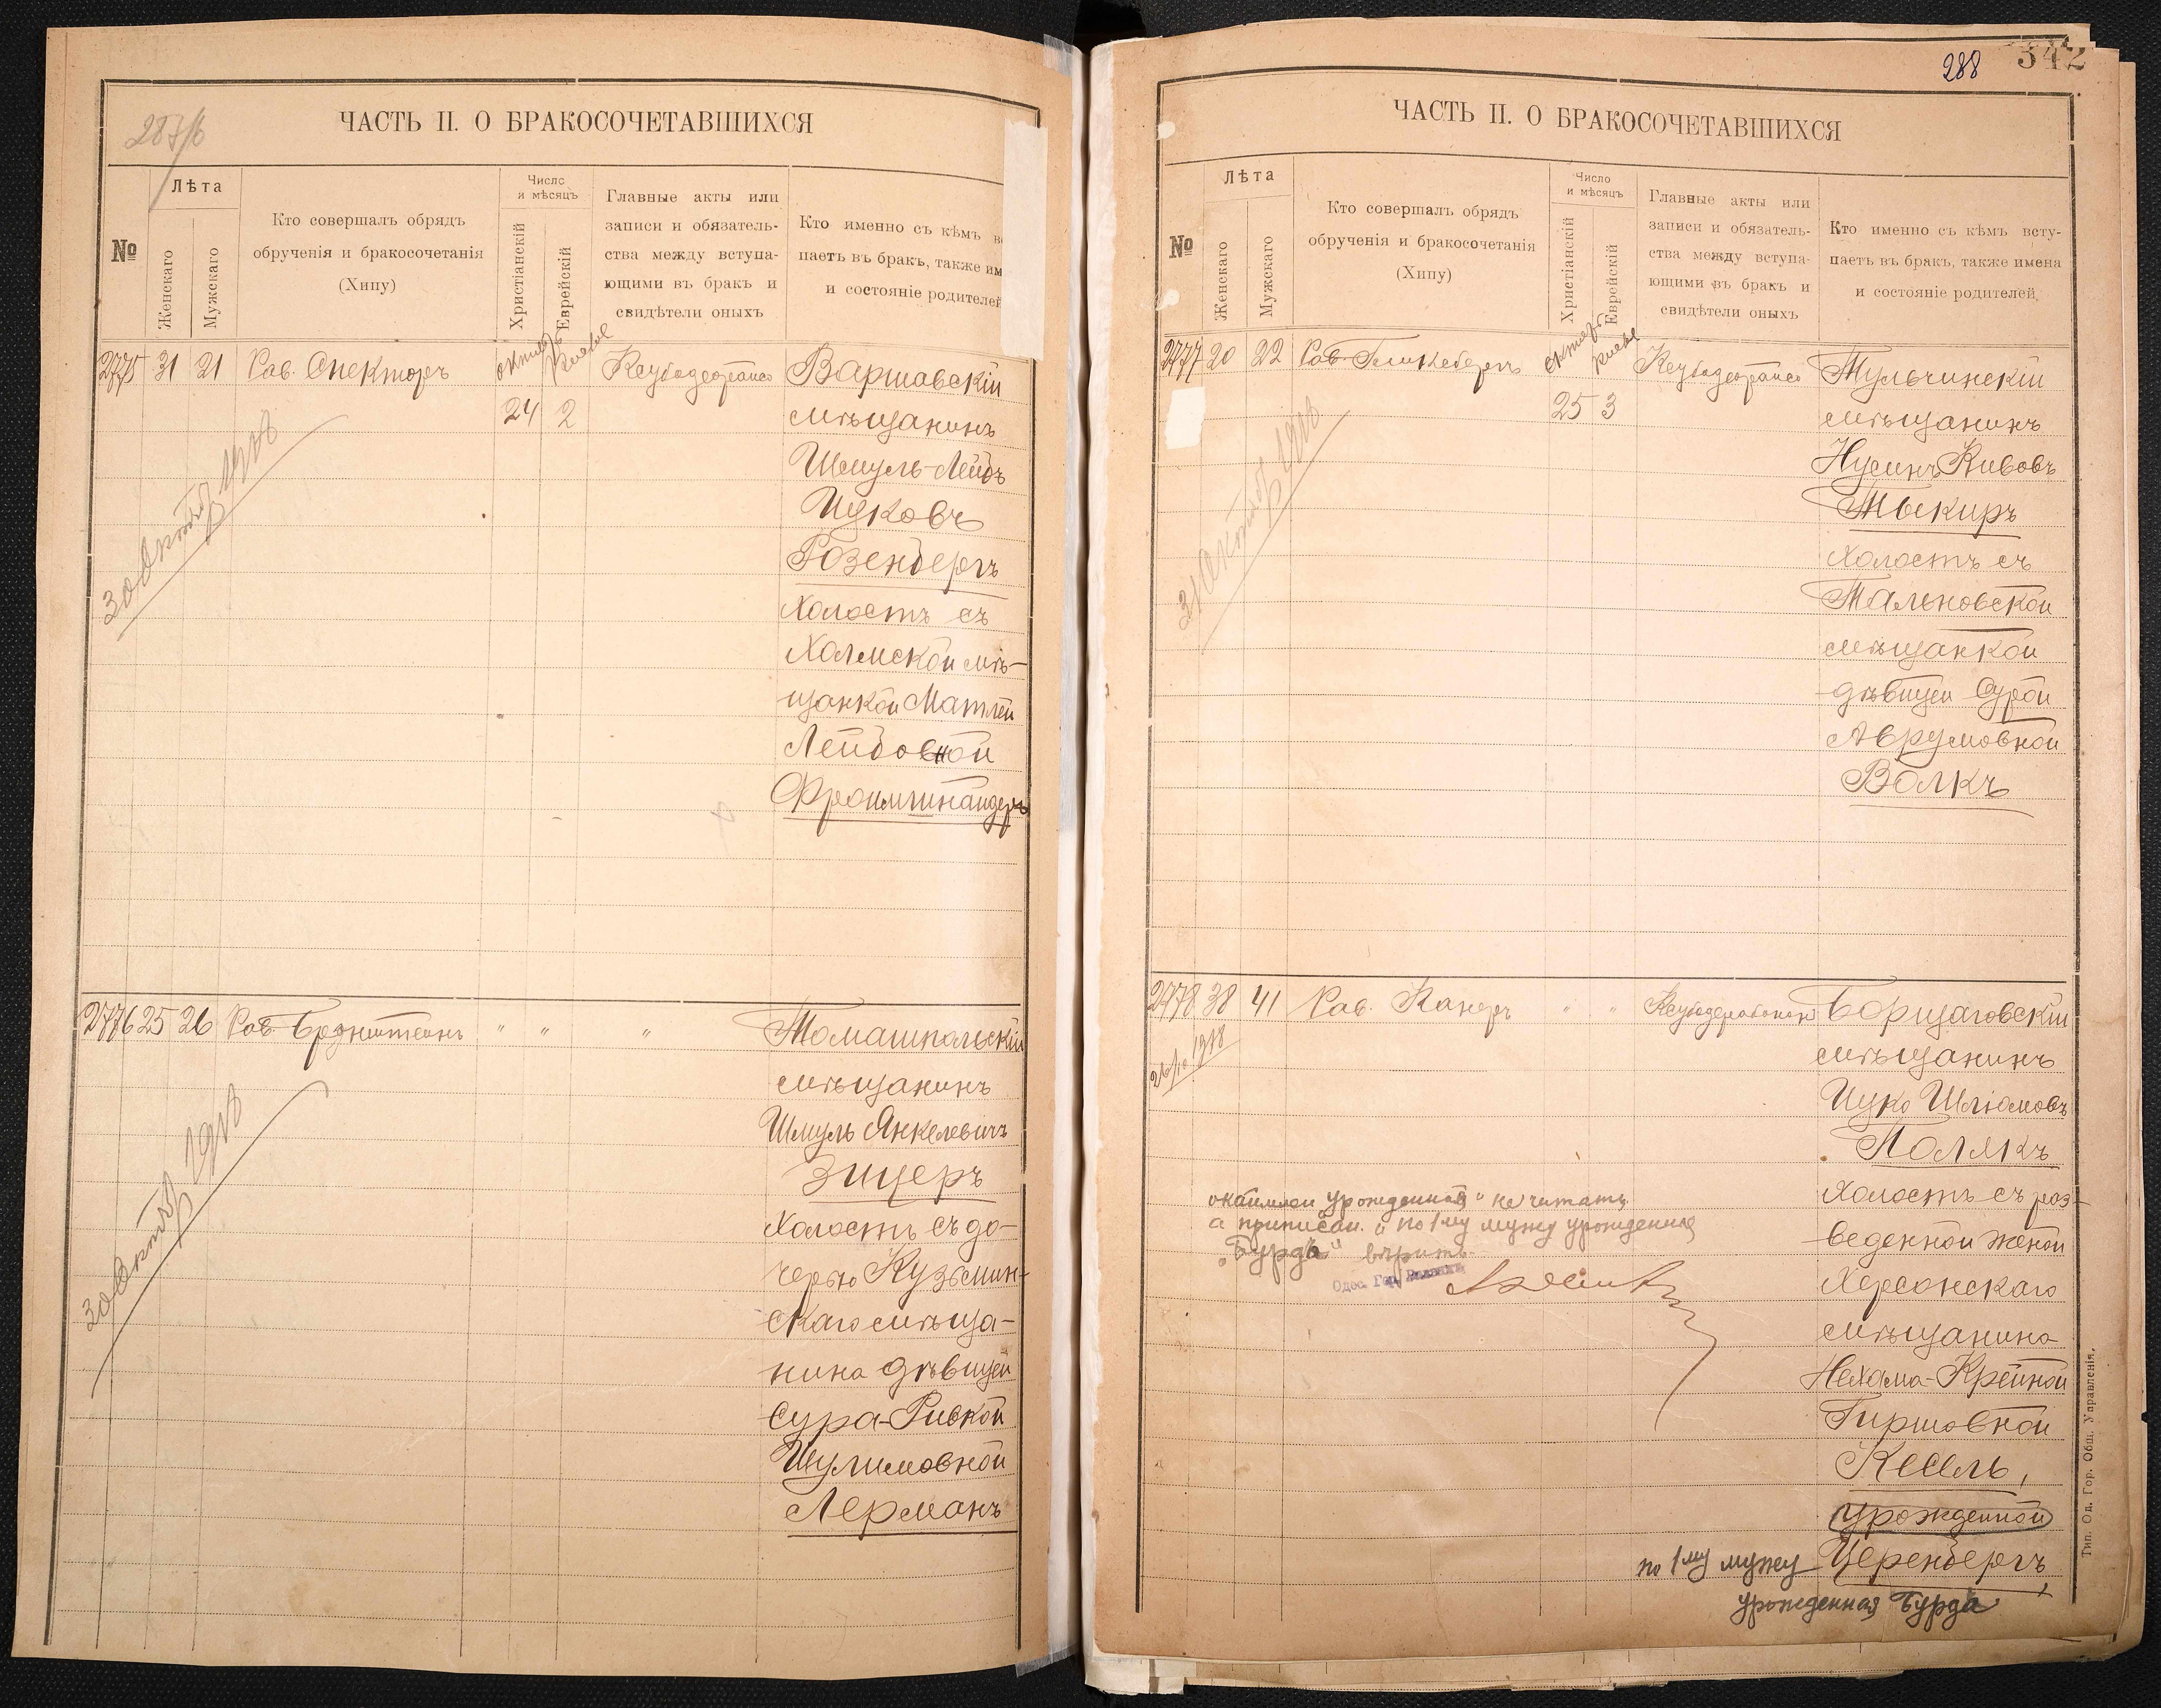 287/б
ЧАСТЬ II. О БРАКОСОЧЕТАВШИХСЯ
№
Лѣта
Женскаго
Мужскаго
Кто совершалъ обрядъ
обрученія и бракосочетанія
(Хипу)
Число
и мѣсяцъ
Христіанскій
Еврейскій
Главные акты или
записи и обязатель-
ства между вступа-
ющими въ бракъ и
свидѣтели оныхъ
Кто именно съ кѣмъ в
паетъ въ бракъ, также им
и состояніе родителей
2775 31 21 Рав. Спекторъ
24 2
Варшавскій
мѣщанинъ
Шмуль-Лейбъ
Ицковъ
Розенбергъ
холостъ съ
Холмской мѣ-
щанкой Матлей
Лейбовной
30 октяб 1918
2776 25 26 Рав. Бронштейнъ " " "
Томашпольскій
мѣщанинъ
Шмуль Янкелевичъ
Зицеръ
холостъ съ до-
черью Кузьмин-
скаго мѣща-
нина дѣвицей
Сура-Ривкой
Шулимовной
Лерманъ
30 октяб 1918
288 342
ЧАСТЬ II. О БРАКОСОЧЕТАВШИХСЯ
№
Лѣта
Женскаго
Мужскаго
Кто совершалъ обрядъ
обрученія и бракосочетанія
(Хипу)
Число
и мѣсяцъ
Христіанскій
Еврейскій
Главные акты или
записи и обязатель-
ства между вступа-
ющими въ бракъ и
свидѣтели оныхъ
Кто именно съ кѣмъ всту-
паетъ въ бракъ, также имена
и состояніе родителей
2777 20 22 Рав. Гликсбергъ
25 3
Тульчинскій
мѣщанинъ
Нусинъ Кивовъ
Тыкиръ
холостъ съ
Мальновской
мѣщанкой
дѣвицей Сурой
Аврумовной
Волкъ
31 октяб 1918
2778 38 41 Рав. Канеръ " "
Борщаговскій
мѣщанинъ
Ицко Шліомовъ
Полякъ
холостъ съ раз-
веденной женой
Херсонскаго
мѣщанина
Нехама-Крейной
Гиршовной
Кесель,
урожденной
по 1му мужу Церенбергъ,
урожденная Бурда
26/10 1918
окаймлен "урожденной" не читать,
а приписан. "по 1му мужу урожденная
Бурда" вѣрить.
Одес. Гор. Раввинъ
Тип. Од. Гор. Общ. Управленія.